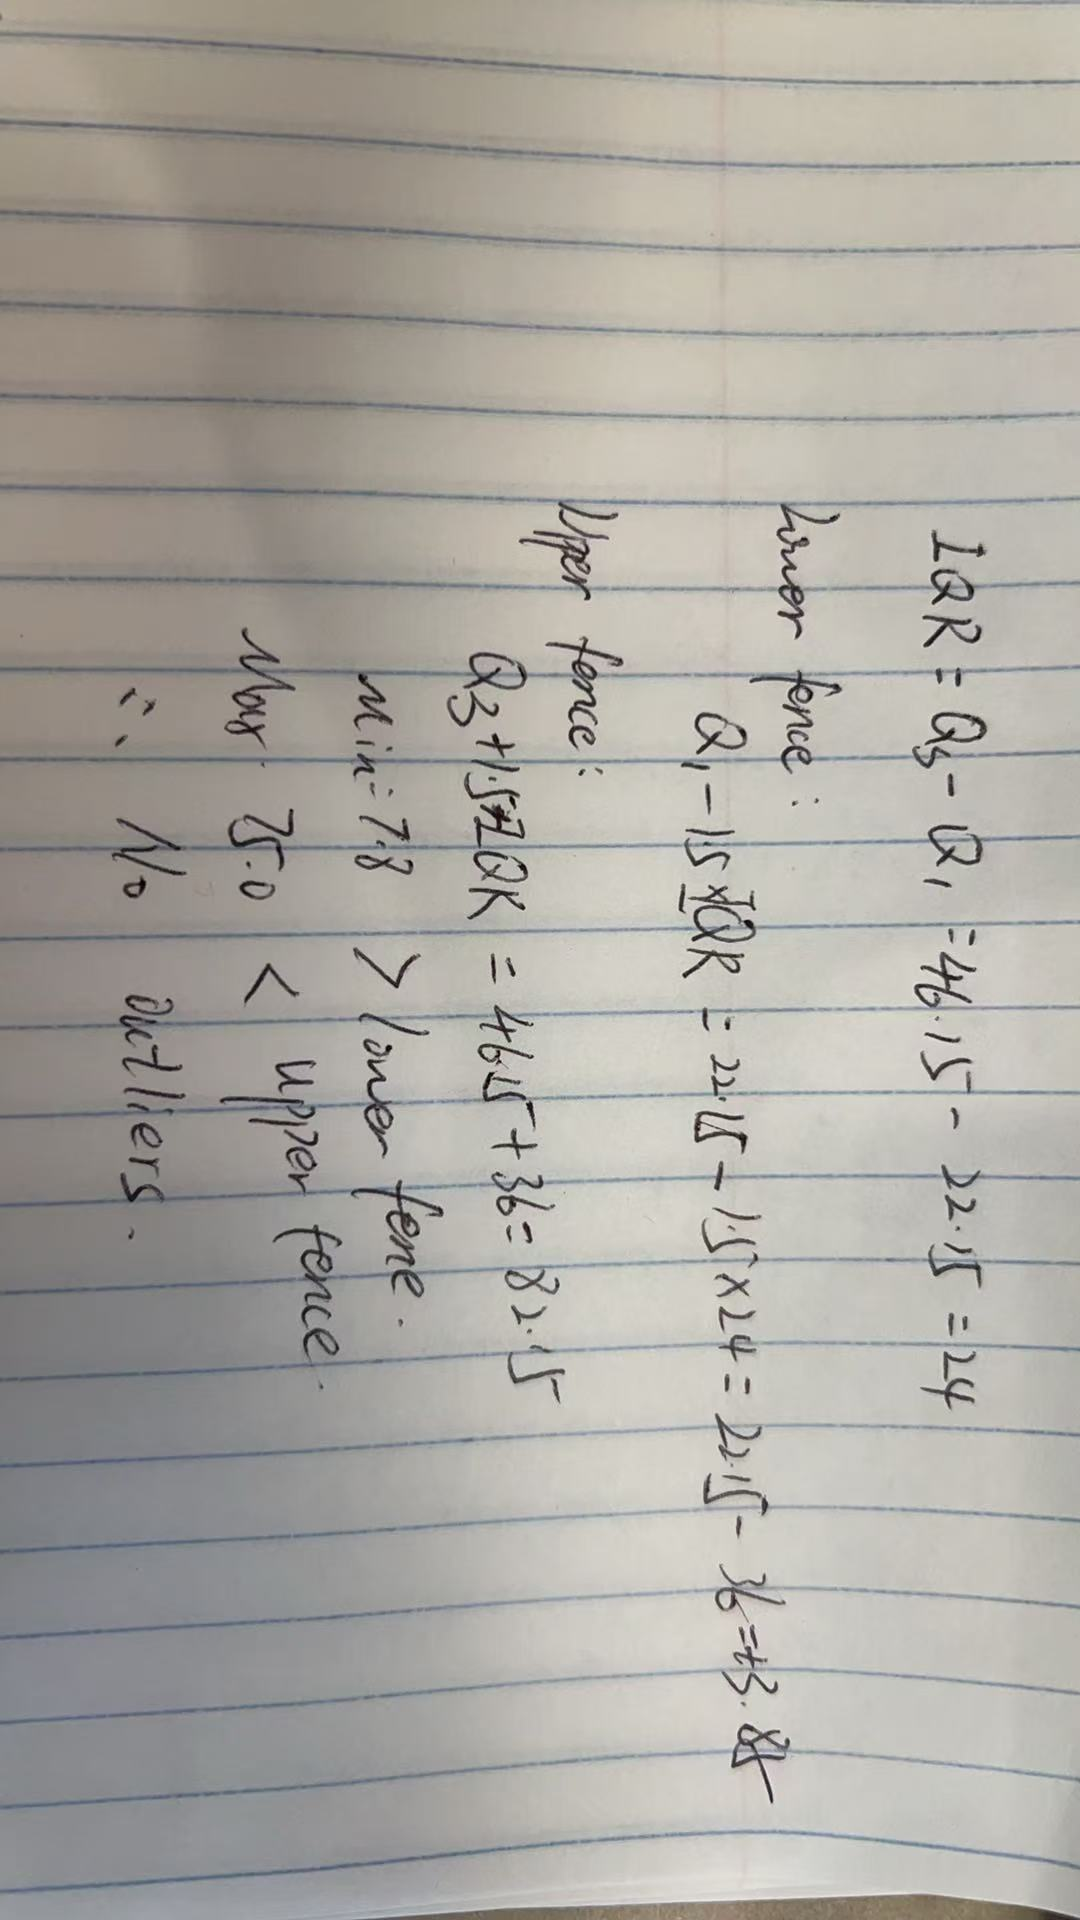 IQR = Q3 - Q1 = 46.15 - 22.15 = 24
Lower fence:
Q1 - 1.5 × IQR = 22.15 - 1.5 × 24 = 22.15 - 36 = -13.85
Upper fence:
Q3 + 1.5 × IQR = 46.15 + 36 = 82.15
Min = 7.8 > lower fene.
Max. 75.0 < upper fence.
∴ No outliers.